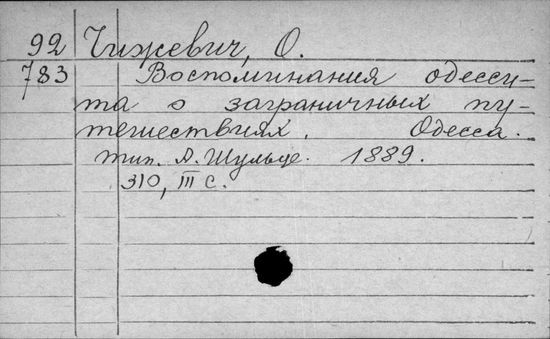 92 Чижевич, О.
783 Воспоминания одесси-
та о заграничных пу-
тешествиях. Одесса.
тип. А. Шульце. 1889.
310, III с.